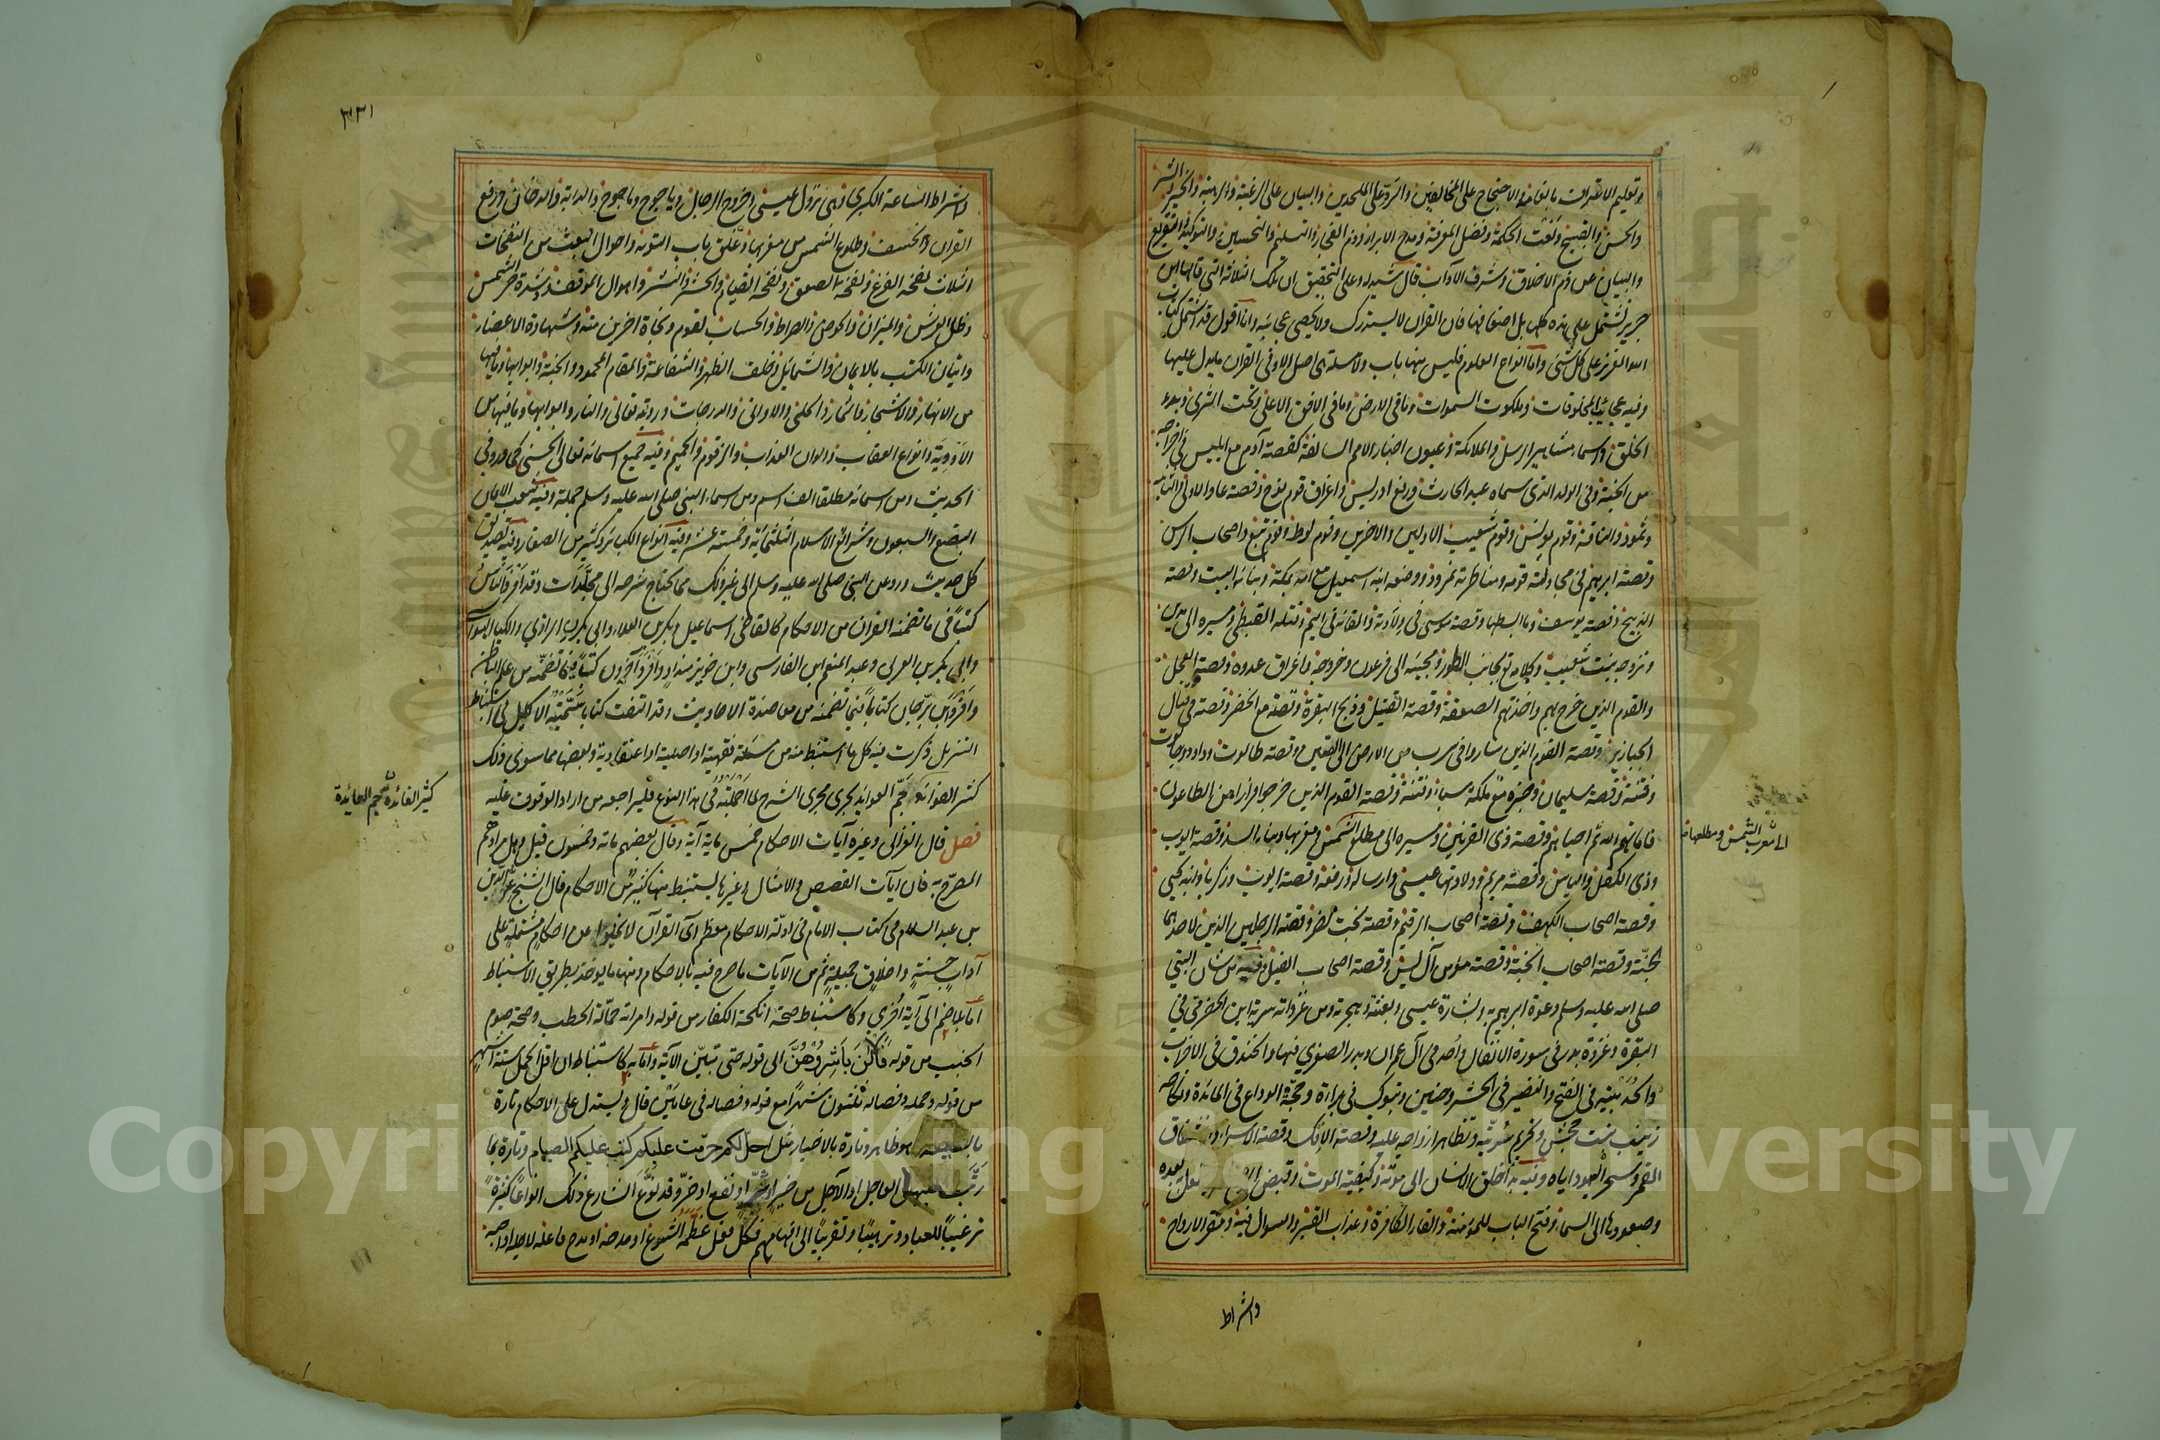 وتعليم الاقرار باسم الله والاحتجاج على المخالفين والرد على الملحدين والبيان على الرغبة والرهبة والخير والشر
والحسن والقبيح ونعت الحكمة وفضل المعرفة ومدح الابرار وذم الفجار والتسليم والتحسين والتوكيد والتقريع
والبيان عن ذم الاخلاق وشرف الآداب قال شيدله وعلى التحقيق ان تلك الثلاثة التي قالها ابن
جرير تشتمل على هذه كلها بل اضعافها فان القران لا يستدرك ولا يحصى عجائبه وانا اقول قد اشتمل كتاب
الله العزيز على كل شئ واما انواع العلوم فليس منها باب ولا مسئلة هي اصل الا وفي القران ما يدل عليها
وفيه عجائب المخلوقات وملكوت السموات وما في الارض وما في الافق الاعلى وتحت الثرى وبدء
الخلق واسماء مشاهير الرسل والملائكة وعيون اخبار الامم السالفة كقصة آدم مع ابليس في اخراجه
من الجنة وفي الولد الذي سماه عبد الحارث ورفع ادريس واغراق قوم نوح وقصة عاد الاولى والثانية
وثمود والناقة وقوم يونس وقوم شعيب الاولين والاخرين وقوم لوط وقوم تبع واصحاب الرس
وقصة ابرهيم في مجادلة قومه ومناظرته نمرود ووضعه ابنه اسمعيل مع امه بمكة وبنائه البيت وقصة
الذبيح وقصة يوسف وما ابسطها وقصة موسى في ولادته والقائه في اليم وقتله القبطي ومسيره الى مدين
وتزوجه بنت شعيب وكلامه تع بجانب الطور ومجيئه الى فرعون وخروجه واغراق عدوه وقصة العجل
والقوم الذين خرج بهم واخذتهم الصعقة وقصة القتيل وذبح البقرة وقصته مع الخضر وقصته في قتال
الجبارين وقصة القوم الذين ساروا في سرب من الارض الى الصين وقصة طالوت وداود وجالوت
وفتنته وقصة سليمان وخبره مع ملكة سبا وفتنته وقصة القوم الذين خرجوا فرارا من الطاعون
فاماتهم الله ثم احياهم وقصة ذي القرنين ومسيره الى مطلع الشمس ومغربها وبناء السد وقصة ايوب
وذي الكفل والياس وقصة مريم وولادتها عيسى وارساله ورفعه وقصة ايوب وزكريا وابنه يحيى
وقصة اصحاب الكهف وقصة اصحاب الرقيم وقصة بخت نصر وقصة الرجلين الذين لاحدهما
الجنة وقصة اصحاب الجنة وقصة مؤمن آل يس وقصة اصحاب الفيل وفيه من شان النبي
صلى الله عليه وسلم دعوة ابرهيم به وبشارة عيسى وبعثته وهجرته ومن غزواته سرية ابن الحضرمي في
البقرة وغزوة بدر في سورة الانفال واحد في آل عمران وبدر الصغرى فيها والخندق في الاحزاب
والحديبية في الفتح والنضير في الحشر وحنين وتبوك في براءة وحجة الوداع في المائدة ونكاحه
زينب بنت جحش وتحريم سريته وتظاهر ازواجه عليه وقصة الافك وقصة الاسراء وانشقاق
القمر وسحر اليهود اياه وفيه بدء خلق الانسان الى موته وكيفية الموت وقبض الروح وما يفعل بها بعده
وصعودها الى السماء وفتح الباب للمؤمنة والقاء الكافرة وعذاب القبر والسوال فيه ومقر الارواح
الى مغرب الشمس ومطلعها
واشراط
٣٣١
واشراط الساعة الكبرى وهي نزول عيسى وخروج الدجال وياجوج وماجوج والدابة والدخان ورفع
القران والخسف وطلوع الشمس من مغربها وغلق باب التوبة واحوال البعث من النفخات
الثلاث نفخة الفزع ونفخة الصعق ونفخة القيام والحشر والنشر واهوال الموقف وشدة حر الشمس
وظل العرش والميزان والحوض والصراط والحساب لقوم ونجاة اخرين منه وشهادة الاعضاء
واتيان الكتب بالايمان والشمائل وخلف الظهر والشفاعة والمقام المحمود والجنة وابوابها وما فيها
من الانهار والاشجار والثمار والحلي والاواني والدرجات ورويته تعالى والنار وابوابها وما فيها من
الاودية وانواع العقاب والوان العذاب والزقوم والحميم وفيه جميع اسمائه تعالى الحسنى كما ورد في
الحديث ومن اسمائه مطلقا الف اسم ومن اسماء النبي صلى الله عليه وسلم جملة وفيه شعب الايمان
البضع والسبعون وشرائع الاسلام الثلثمائة وخمسة عشر وفيه انواع الكبائر وكثير من الصغائر وفيه تصديق
كل حديث ورد عن النبي صلى الله عليه وسلم الى غير ذلك مما يحتاج شرحه الى مجلدات وقد افرد الناس
كتبا في ما تضمنه القران من الاحكام كالقاضي اسماعيل وبكر بن العلاء وابي بكر الرازي والكيا الهراسي
وابي بكر بن العربي وعبد المنعم ابن الفارس وابن خويز منداد وافرد آخرون كتبا فيما تضمنه من علم الباطن
وافرد ابن برجان كتابا فيما تضمنه من معاضدة الاحاديث وقد الفت كتابا سميته الاكليل في استنباط
التنزيل ذكرت فيه كل ما استنبط منه من مسئلة فقهية او اصلية او اعتقادية وبعضها مما سوى ذلك
كثير الفوائد جم العوائد يجري مجرى الشرح لما اجملته في هذا النوع فليراجعه من اراد الوقوف عليه
فصل قال الغزالي وغيره آيات الاحكام خمس ماية آية وقال بعضهم مائة وخمسون قيل ولعل مرادهم
المصرح به فان آيات القصص والامثال وغيرها يستنبط منها كثير من الاحكام قال الشيخ عز الدين
بن عبد السلام في كتاب الامام في ادلة الاحكام معظم آى القرآن لا يخلوا عن احكام مشتملة على
آداب حسنة واخلاق جميلة ثم من الآيات ما صرح فيه بالاحكام ومنها ما يوخذ بطريق الاستنباط
اما بلا ضم الى آية اخرى كاستنباط صحة انكحة الكفار من قوله وامراته حمالة الحطب وصحة صوم
الجنب من قوله فالئن باشروهن الى قوله حتى تبين الآية واما به كاستنباط ان اقل الحمل ستة اشهر
من قوله وحمله وفصاله ثلثون شهرا مع قوله وفصاله في عامين قال ويستدل على الاحكام تارة
بالصيغة وهو ظاهر وتارة بالاخبار مثل احل لكم حرمت عليكم كتب عليكم الصيام وتارة بما
رتب عليها في العاجل او الآجل من خير او شر او نفع او ضر وقد نوع الشارع ذلك انواعا كثيرة
ترغيبا للعباد وترهيبا وتقريبا الى افهامهم فكل فعل عظمه الشرع او مدحه او مدح فاعله لاجله او احبه
كثير الفائدة جم العائدة
Copyright © King Saud University